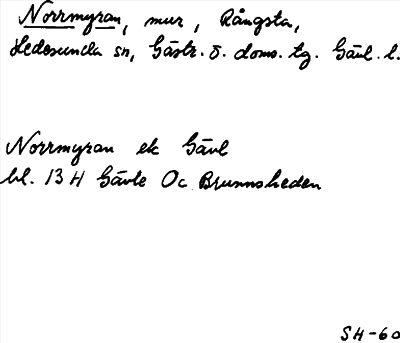 Norrmyran, mur, Rångsta,
Hedesunda sn, Gästr. ö. doms. tg. Gävl. l.
Norrmyran ek Gävl
bl. 13 H Gävle Oc Brunnsheden
SH-60